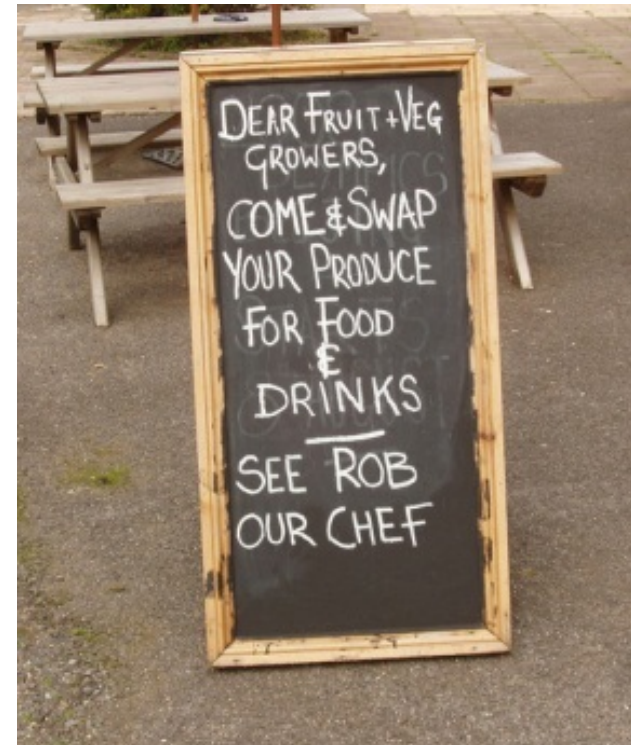 DEAR FRUIT + VEG
GROWERS,
COME & SWAP
YOUR PRODUCE
FOR FOOD
&
DRINKS
SEE ROB
OUR CHEF